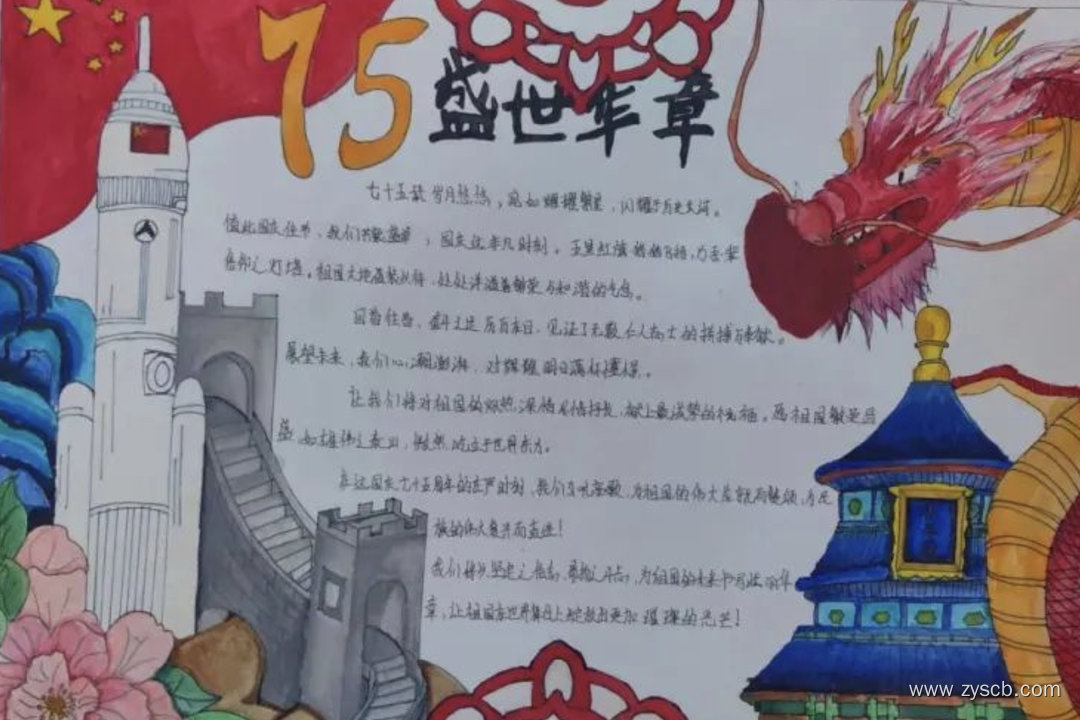 75
盛世华章
七十五载岁月悠悠，宛如璀璨繁星，闪耀于历史长河。
值此国庆佳节，我们共歌盛章，国庆这非凡时刻。五星红旗猎猎飞扬，乃吾辈
信仰之灯塔。祖国大地盛装以待，处处洋溢着繁荣与和谐的气息。
回首往昔，奋斗之途历历在目，见证了无数仁人志士的拼搏与奉献。
展望未来，我们心潮澎湃，对辉煌明日满怀憧憬。
让我们将对祖国的炽热深情尽情抒发，献上最诚挚的祝福。愿祖国繁荣昌
盛，如雄伟之泰山，傲然屹立于世界东方。
在这国庆七十五周年的庄严时刻，我们高吭欢歌，为祖国的伟大成就而赞颂，为民
族的伟大复兴而奋进！
我们将以坚定之信念，昂扬之斗志，为祖国的未来书写绚丽华
章，让祖国在世界舞台上绽放出更加璀璨的光芒！
www.zyscb.com